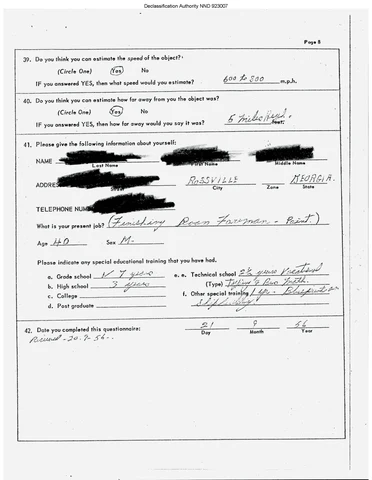 Declassification Authority NND 923007
Page 8
39. Do you think you can estimate the speed of the object?
(Circle One) Yes No
IF you answered YES, then what speed would you estimate? 600 to 800 m.p.h.
40. Do you think you can estimate how far away from you the object was?
(Circle One) Yes No
IF you answered YES, then how far away would you say it was? 5 miles feet.
41. Please give the following information about yourself:
NAME
Last Name First Name Middle Name
ADDRESS ROSSVILLE GEORGIA.
Street City Zone State
TELEPHONE NUM
What is your present job? (Finishing Room Foreman - Paint)
Age 40 Sex M-
Please indicate any special educational training that you have had.
a. Grade school 7 years e. Technical school 2½ years
b. High school 3 years (Type)
c. College f. Other special training 1 yr. Blueprint
d. Post graduate
42. Date you completed this questionnaire: 21 9 56
Received - 20-9-56-. Day Month Year